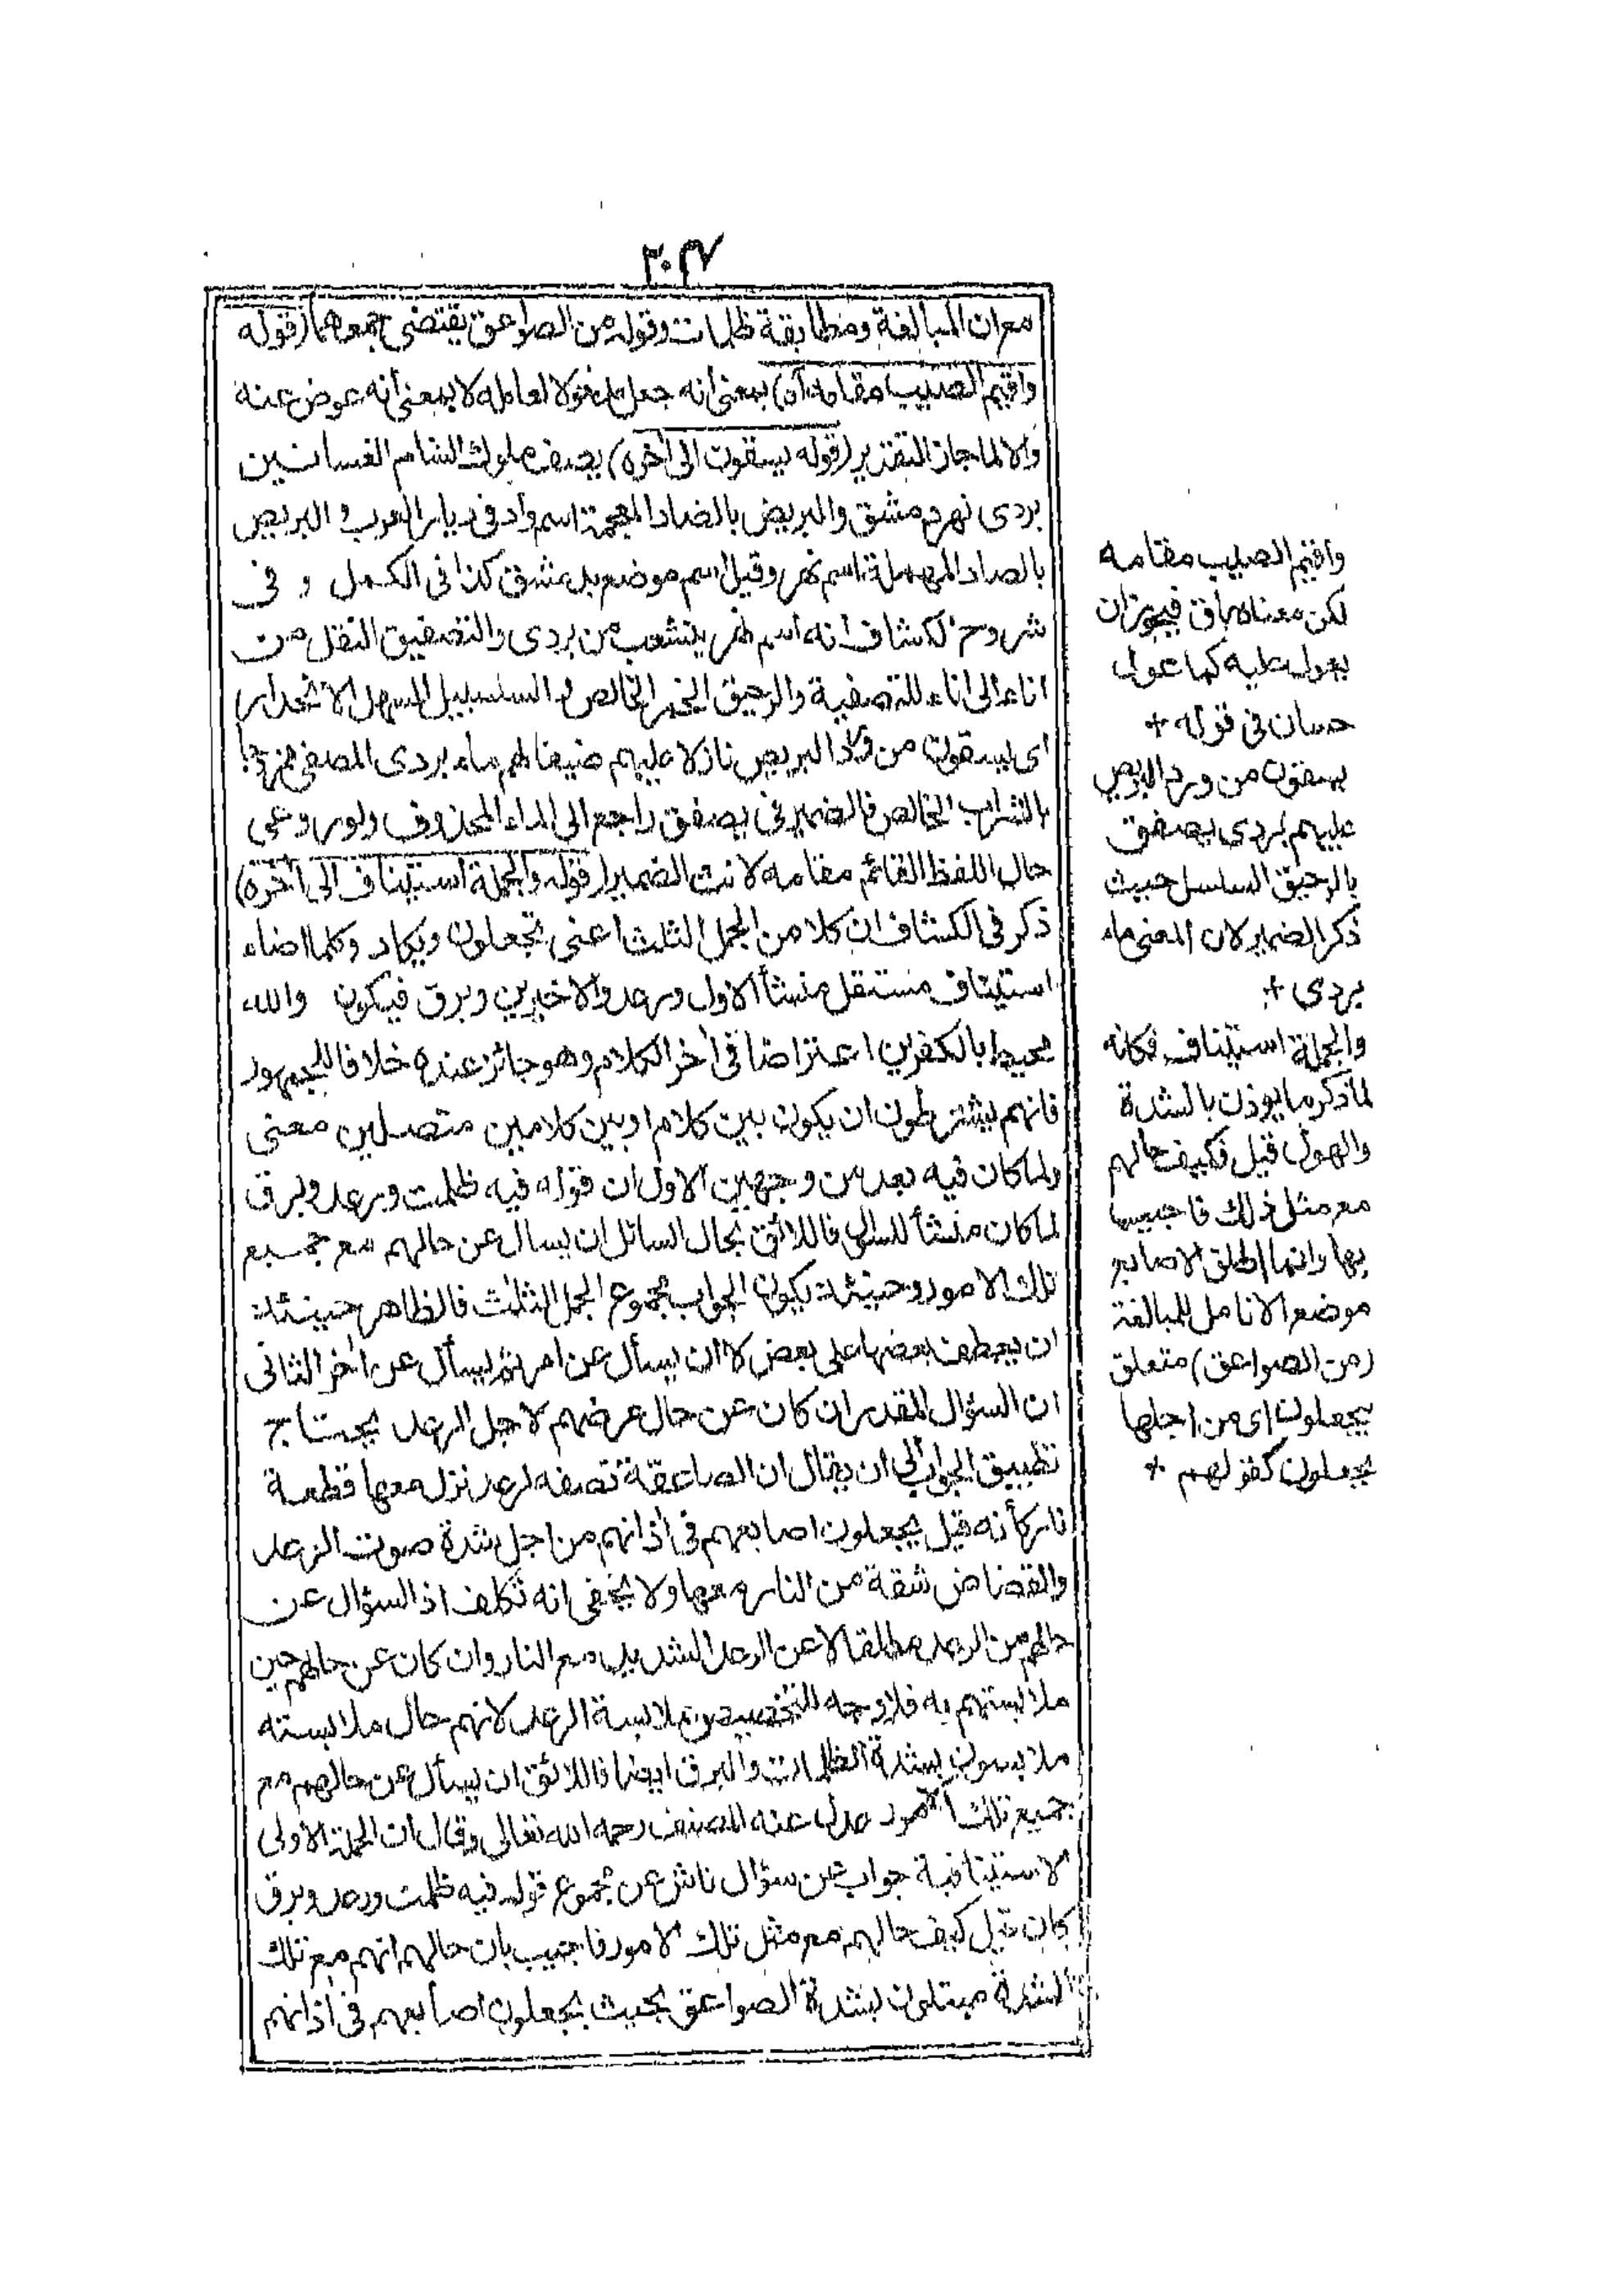 ٣٠٧
مع ان المبالغة ومطابقة ظلمات وقوله من الصواعق يقتضى جمعهما (قوله
واقيم الصيب مقامه اه) بمعنى انه جعل معمولا لعامله لا بمعنى انه عوض عنه
والا لما جاز التقدير (قوله يسقون الى اخره) يصف ملوك الشام الغسانيين
بردى نهر دمشق والبريض بالضاد المعجمة اسم واد فى ديار العرب و البريص
بالصاد المهملة اسم نهر وقيل اسم موضع بدمشق كذا فى الكمل و فى
شروح الكشاف انه اسم نهر يتشعب من بردى والتصفيق النقل من
اناء الى اناء للتصفية والرحيق الخمر الخالص و السلسبيل السهل الانحدار
اى يسقون من ورد البريص نازلا عليهم ضيفا لهم ماء بردى المصفى ممزوجا
بالشراب الخالص فالضمير فى يصفق راجع الى الماء المحذوف ولو روعى
حال اللفظ القائم مقامه لانث الضمير (قوله والجملة استيناف الى اخره)
ذكر فى الكشاف ان كلا من الجمل الثلث اعنى يجعلون ويكاد وكلما اضاء
استيناف مستقل منشأ الاول ورعد والاخيرين وبرق فيكون والله
محيط بالكفرين اعتراضا فى اخر الكلام وهو جائز عنده خلافا للجمهور
فانهم يشترطون ان يكون بين كلام او بين كلامين متصلين معنى
ولما كان فيه بعد من وجهين الاول ان قوله فيه ظلمت ورعد وبرق
لما كان منشأ للسوال فاللائق بحال السائل ان يسأل عن حالهم مع جميع
تلك الامور وحينئذ يكون الجواب مجموع الجمل الثلث فالظاهر حينئذ
ان يعطف بعضها على بعض لا ان يسأل عن امر ثم يسأل عن اخر الثانى
ان السؤال المقدر ان كان عن حال عرضهم لاجل الرعد يحتاج
تطبيق الجواب الى ان يقال ان الصاعقة قصفة رعد تنزل معها قطعة
نار كأنه قيل يجعلون اصابعهم فى اذانهم من اجل شدة صوت الرعد
وانقضاض شقة من النار معها ولا يخفى انه تكلف اذ السؤال عن
حالهم من الرعد مطلقا لا عن الرعد الشديد مع النار وان كان عن حالهم حين
ملابستهم به فلا وجه للتخصيص بملابسة الرعد لانهم حال ملابسته
ملابسون بشدة الظلمات والبرق ايضا فاللائق ان يسأل عن حالهم مع
جميع تلك الامور عدل عنه المصنف رحمه الله تعالى وقال ان الجملة الاولى
الاستينافية جواب عن سؤال ناش عن مجموع قوله فيه ظلمت ورعد وبرق
كان قيل كيف حالهم مع مثل تلك الامور فاجيب بان حالهم انهم مع تلك
الشدة مبتلون بشدة الصواعق بحيث يجعلون اصابعهم فى اذانهم
واقيم الصيب مقامه
لكن معناه باق فيجوز ان
يعول عليه كما عول
حسان فى قوله *
يسقون من ورد البريص
عليهم بردى يصفق
بالرحيق السلسل حيث
ذكر الضمير لان المعنى ماء
بردى *
والجملة استيناف فكانه
لما ذكر ما يوذن بالشدة
والهول قيل فكيف حالهم
مع مثل ذلك فاجيب
بها وانما اطلق الاصابع
موضع الانامل للمبالغة
(من الصواعق) متعلق
بيجعلون اى من اجلها
يجعلون كقولهم *